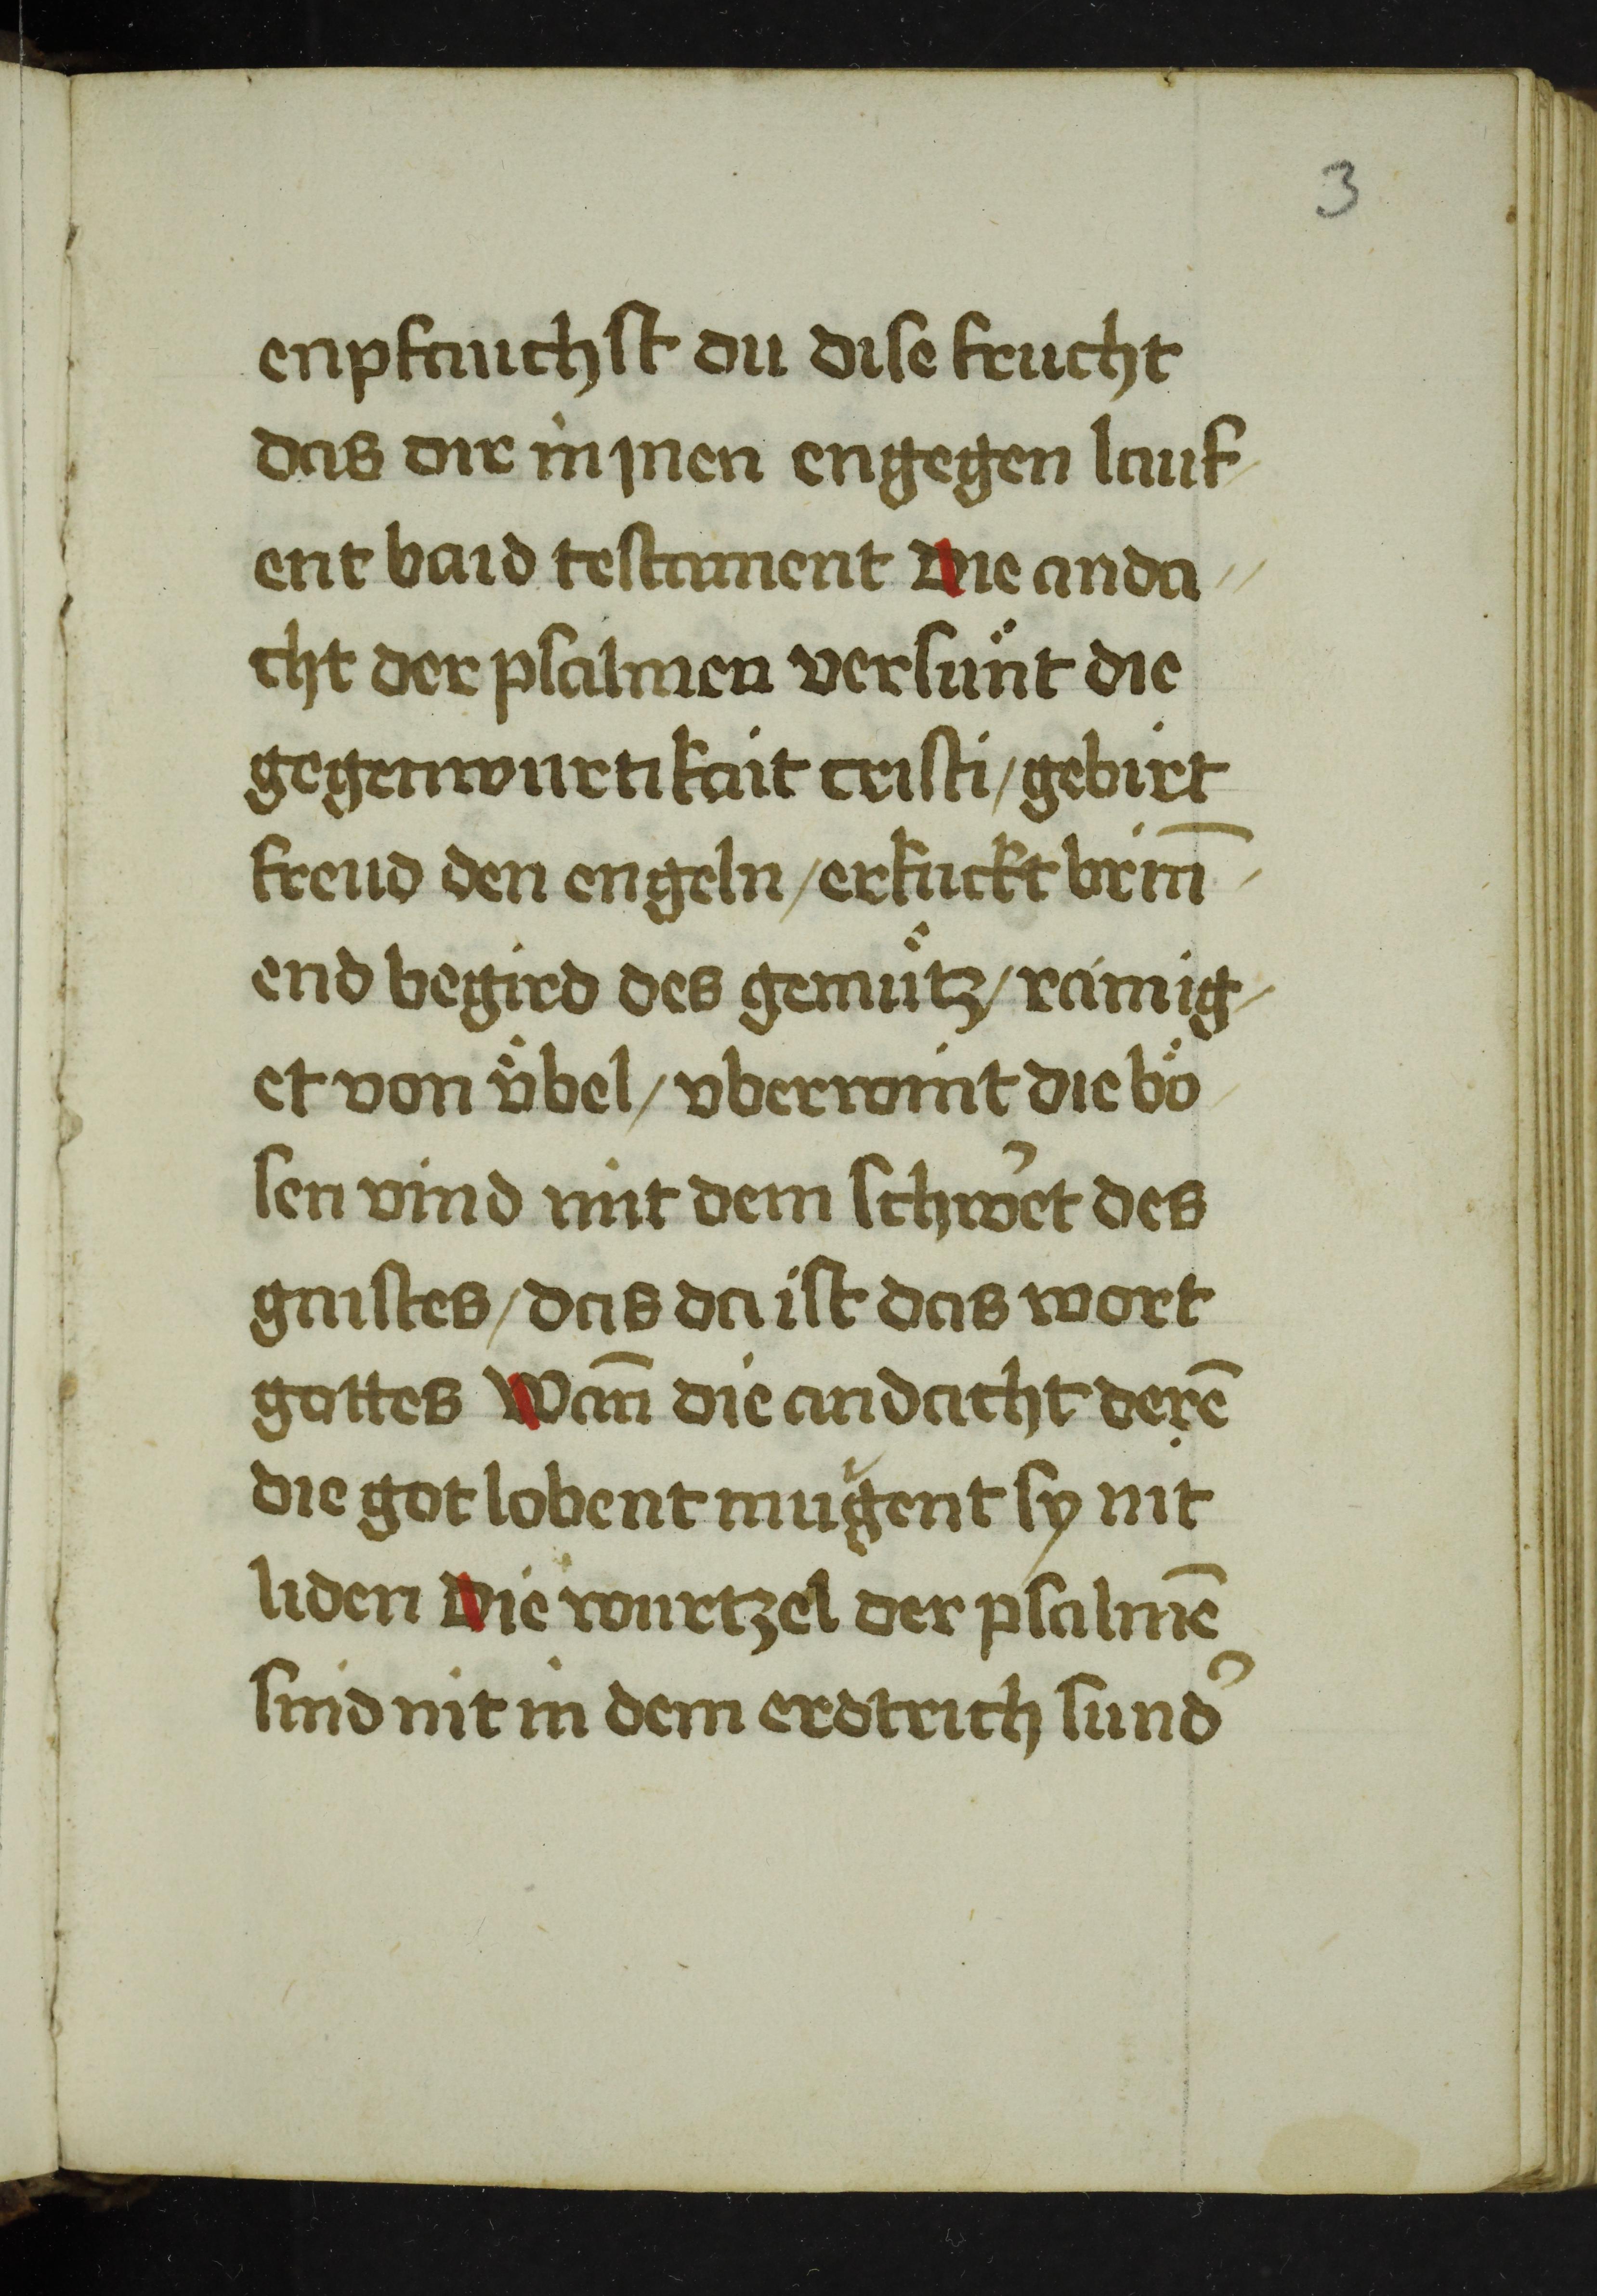 3
enpfauchst du dise frucht
das dir in jnen engegen lauf/
ent baid testament Die anda//
cht der psalmen versu̎nt die
gegenwurtikait cristi/gebirt
freud den engeln/erkuckt brin̄/
end begird des gemu̎tz/rainig/
et von v̎bel/vberwint die bö/
sen vind mit dem schwe͛t des
gaistes/das da ist das wort
gottes Wan̄ die andacht derē
die got lobent mugent sy nit
liden Die wurtzel der psalmē
sind nit in dem erdtrich sund͛